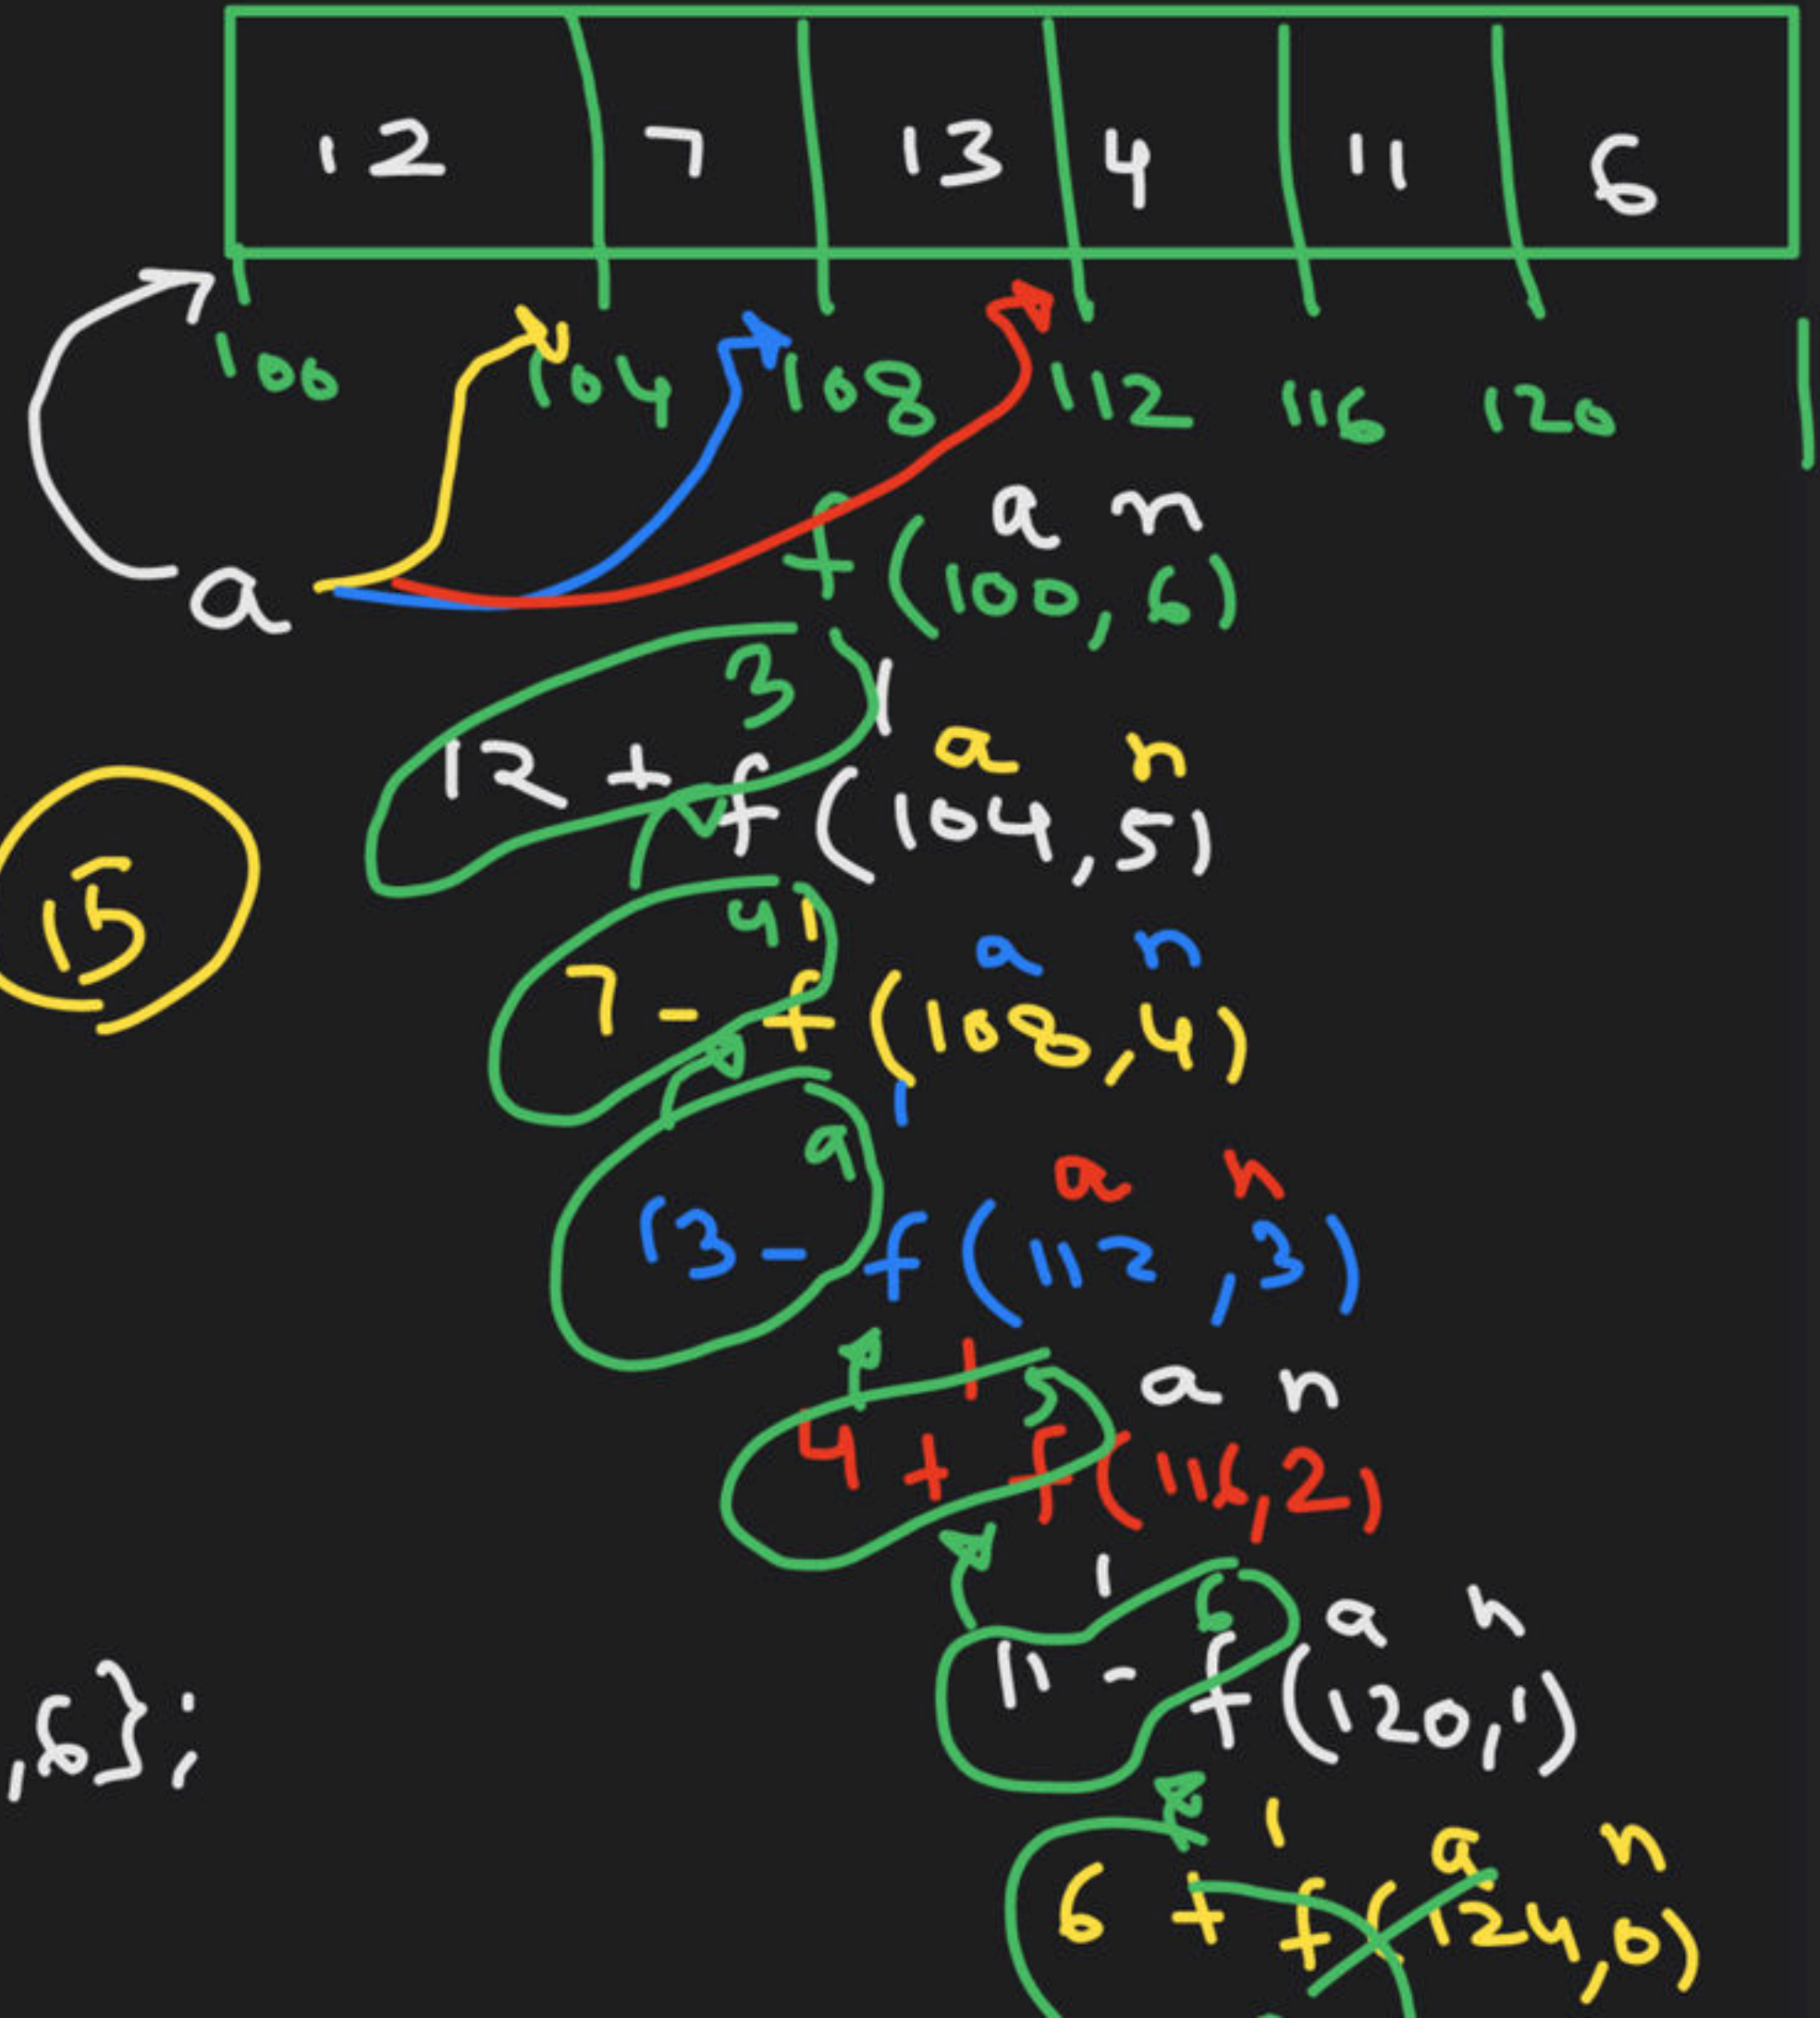 12 7 13 4 11 6
100 104 108 112 116 120
a n
a f(100,6)
3
a n
12 + f(104,5)
15
4
a n
7 - f(108,4)
9
a n
13 - f(112,3)
5
a n
4 + f(116,2)
6
a n
11 - f(120,1)
,6};
a n
6 + f(124,0)